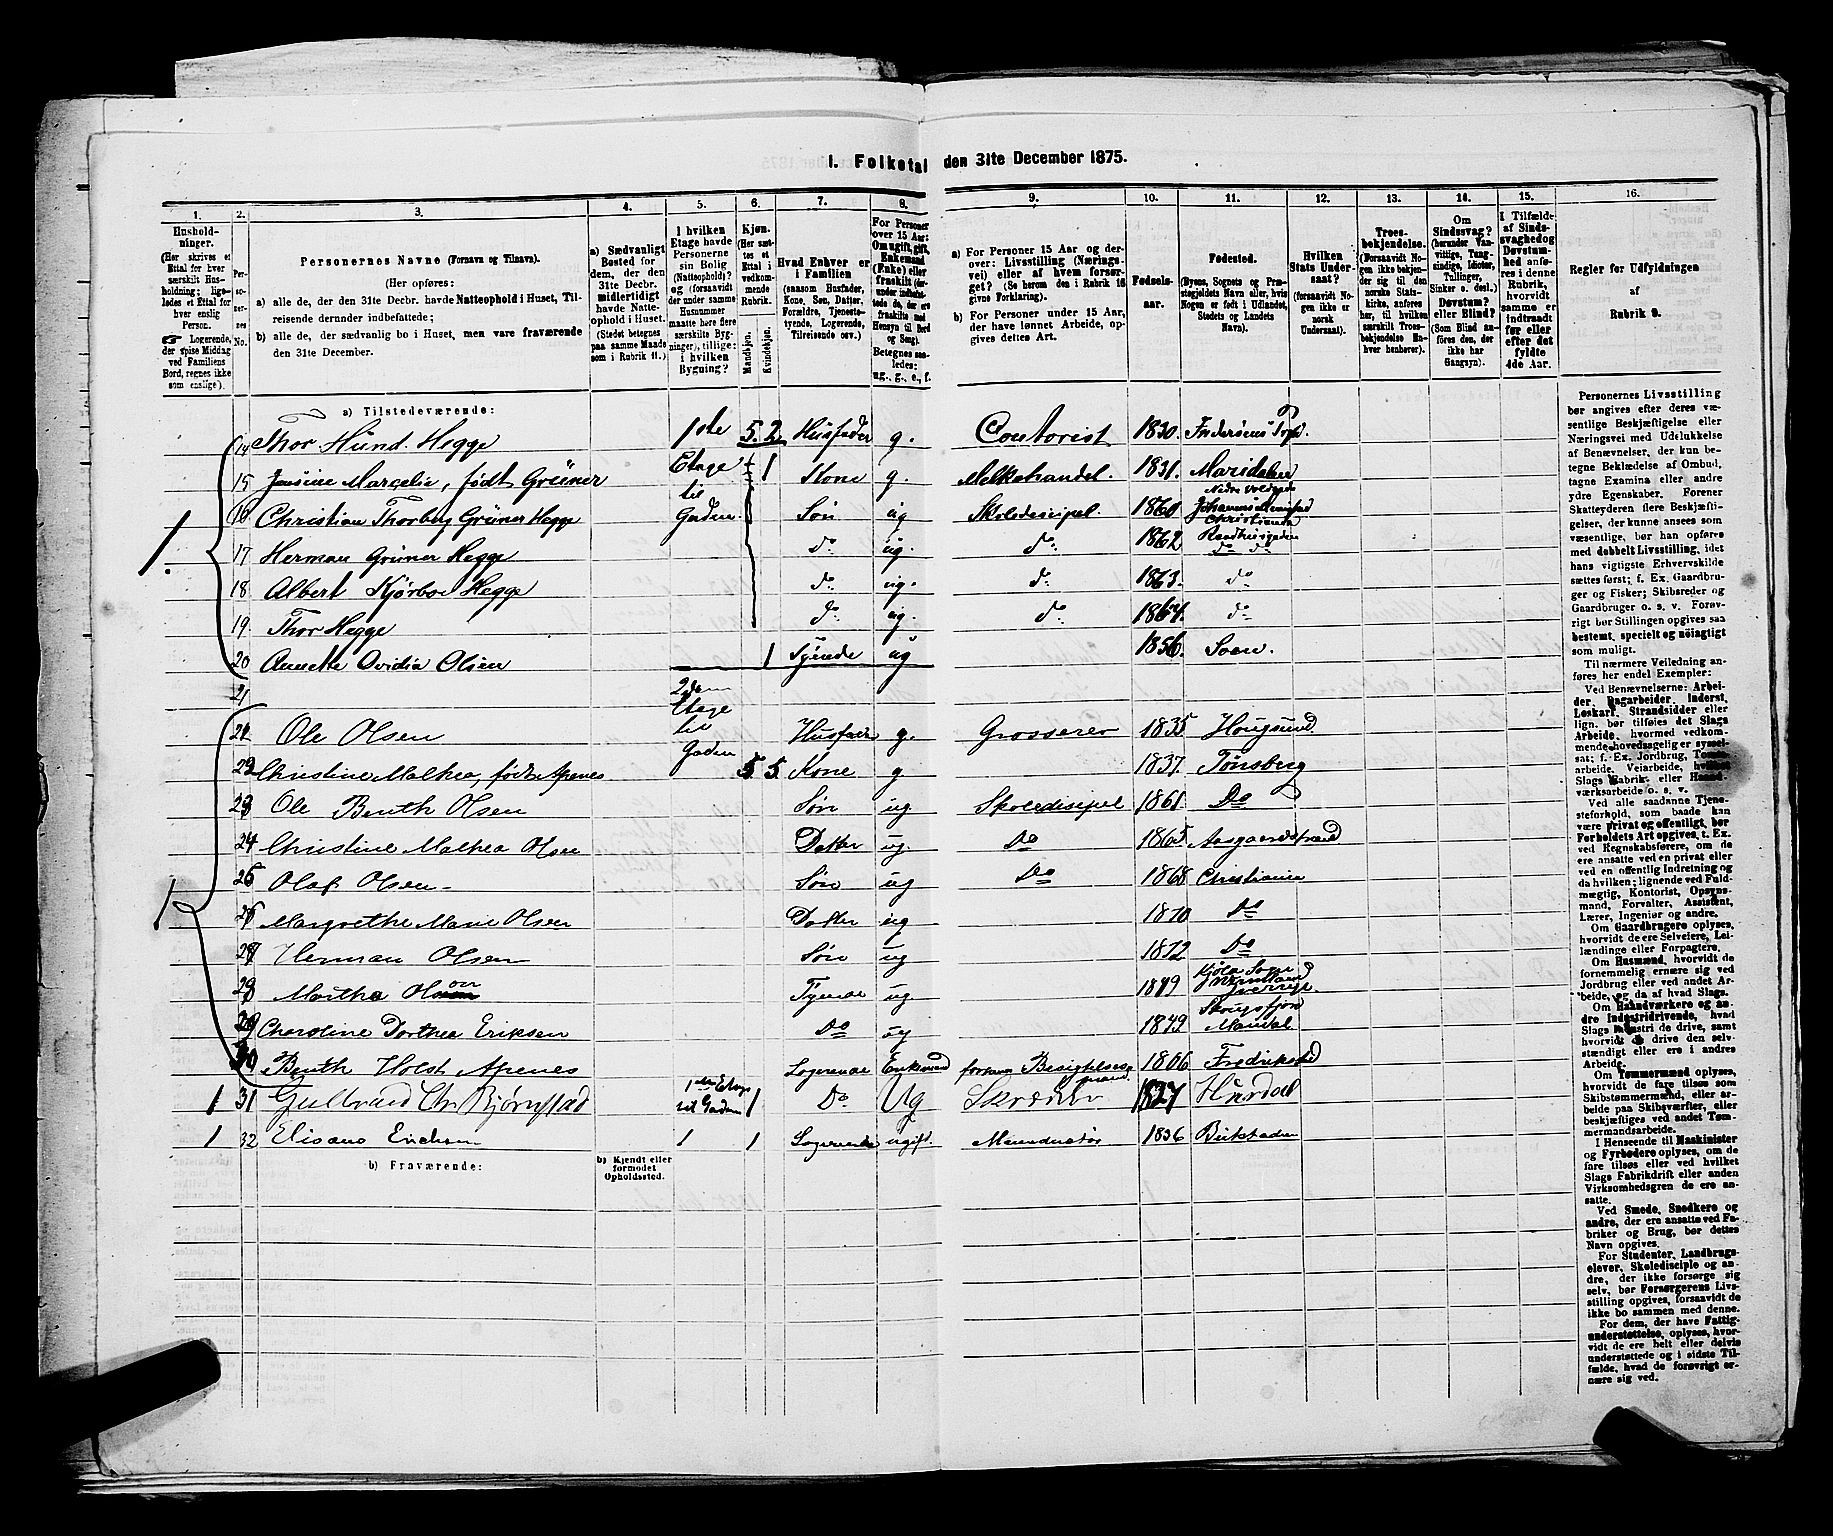 I. Folketal den 31te December 1875.
1. 2. 3. 4. 5. 6. 7. 8. 9. 10. 11. 12. 13. 14. 15. 16.
Husholdninger. (Her skrives et Ettal for hver særskilt Husholdning; ligeledes et Ettal for hver enslig Person. Logerende, der spise Middag ved Familiens Bord, regnes ikke som enslige).
Personernes No.
Personernes Navne (Fornavn og Tilnavn).
(Her opføres:
a) alle de, der den 31te Decbr. havde Natteophold i Huset, Tilreisende derunder indbefattede;
b) alle de, der sædvanlig bo i Huset, men vare fraværende den 31te December.
a) Sædvanligt Bosted for dem, der den 31te Decbr. midlertidigt havde Natteophold i Huset. (Stedet betegnes paa samme Maade som i Rubrik 11.)
I hvilken Etage havde Personerne sin Bolig (Natteophold)? (forsaavidt der under samme Husnummer maatte høre flere særskilte Bygninger), tillige: i hvilken Bygning?
Kjøn. (Her sættes et Ettal i vedkommende Rubrik.
Mandkjøn. Kvindekjøn.
Hvad Enhver er i Familien (saasom Husfader, Kone, Søn, Datter, Forældre, Tjenestetyende, Logerende, Tilreisende osv.)
For Personer over 15 Aar: Om ugift, gift, Enkemand (Enke) eller fraskilt
Betegnes saaledes: ug., g., e., f.
a) For Personer 15 Aar og derover: Livsstilling (Næringsvei) eller af hvem forsørget? (Se herom den i Rubrik 16 givne Forklaring).
b) For Personer under 15 Aar, der have lønnet Arbeide, opgives dettes Art.
Fødselsaar.
Fødested. (Byens, Sognets og Præstegjeldets Navn eller, hvis Nogen er født i Udlandet, Stedets og Landets Navn).
Hvilken Stats Undersaat? (forsaavidt Nogen ikke er norsk Undersaat).
Troesbekjendelse. (Forsaavidt Nogen ikke bekjender sig til den norske Statskirke, anføres her, til hvilken særskilt Troesbekjendelse Enhver henhører).
Om Sindssvag? (herunder Vanvittige, Tungsindige, Idioter, Tullinger, Sinker o. desl.) Døvstum? eller Blind? (Som Blind anføres den, der ikke har Gangsyn).
I Tilfælde af Sindssvaghed og Døvstumhed anføres i denne Rubrik, hvorvidt samme er indtraadt før eller efter det fyldte 4de Aar.
Regler for Udfyldningen af Rubrik 9.
a) Tilstedeværende:
14 Thor Hund. Hegge 1ste 5. 2. Husfader g. Contorist 1830.
15 Marcelie, født Grüner Etage 1 Kone g. Melkehandel. 1831. Maridalen
16 Christian Thorberg Grüner Hegge til Gaden. Søn ug Skoledicipel. 1860 Christiania
17 Herman Grüner Hegge do ug. do 1862 Raadhusgaden do do
18 Albert Kjørboe Hegge do ug. do 1863. do
19. Thor Hegge do ug. do 1864. do
20 Annette Ovidia Olsen 1 Tyende ug 1856. Soon.
21 2den Etage til Gaden
21 Ole Olsen Husfader g. Grosserer 1835 Hougsund
22 Christine Mathea, født Apenes 5 5. Kone g 1837. Tønsberg
23 Ole Benth Olsen Søn ug Skoledisipel 1861 Do
24 Christine Mathea Olsen Datter ug. Do 1865 Aasgaardstrand
25 Olaf Olsen Søn ug Do 1868 Christiania
26 Margrethe Marie Olsen Datter ug 1870 Do
27 Herman Olsen Søn ug 1872 Do
28 Marthe Olsen Tyende ug. 1849
29 Charoline Dorthea Eriksen Do ug 1849 Mandal
30 Benth Holst Apenes Logerende Enkemand 1806 Fredrikstad
1 31 Gulbrand Chr Bjørnstad 1ste Etage til Gaden 1 Do Ug Skrædder 1827 Hurdal
1 32 1 1 Logerende ugift. 1836
b) Fraværende:
b) Kjendt eller formodet Opholdssted.
Personernes Livsstilling bør angives efter deres væsentlige Beskjæftigelse eller Næringsvei med Udelukkelse af Benævnelser, der kun betegne Beklædelse af Ombud, tagne Examina eller andre ydre Egenskaber. Forener Skatteyderen flere Beskjæftigelser, der kunne ansees som væsentlige, bør han opføres med dobbelt Livsstilling, idet hans vigtigste Erhvervskilde sættes først; f. Ex. Gaardbruger og Fisker; Skibsreder og Gaardbruger o. s. v. Forøvrigt bør Stillingen opgives saa bestemt, specielt og nøiagtigt som muligt.
Til nærmere Veiledning anføres her endel Exempler:
Ved Benævnelserne: Arbeider, Dagarbeider, Inderst, Løskarl, Strandsidder eller lign. bør tilføies det Slags Arbeide, hvormed vedkommende hovedsagelig er sysselsat; f. Ex. Jordbrug, Tomtearbeide, Veiarbeide, hvilket Slags Fabrik- eller Haandværksarbeide o. s. v.
Ved alle saadanne Tjenesteforhold, som baade kan være privat og offentligt, bør Forholdets Art opgives, t. Ex. ved Regnskabsførere, om de ere ansatte ved en privat eller ved en offentlig Indretning og da hvilken; lignende ved Fuldmægtig, Kontorist, Opsynsmand, Forvalter, Assistent, Lærer, Ingeniør og andre.
Om Gaardbrugere oplyses, hvorvidt de ere Selveiere, Leilændinge eller Forpagtere.
Om Husmænd, hvorvidt de fornemmelig ernære sig ved Jordbrug eller ved andet Arbeide, og da af hvad Slags.
Om Haandværkere og andre Industridrivende, hvad Slags Industri de drive, samt hvorvidt de drive den selvstændigt eller ere i andres Arbeide.
Om Tømmermænd oplyses, hvorvidt de fare tilsøs som Skibstømmermænd, eller arbeide paa Skibsværfter, eller beskjæftiges ved andet Tømmermandsarbeide.
I Henseende til Maskinister og Fyrbødere oplyses, om de fare tilsøs eller ved hvilket Slags Fabrikdrift eller anden Virksomhedsgren de ere ansatte.
Ved Smede, Snedkere og andre, der ere ansatte ved Fabriker og Brug, bør dettes Navn opgives.
For Studenter, Landbrugselever, Skoledisciple og andre, der ikke forsørge sig selv, bør Forsørgerens Livsstilling opgives, forsaavidt de ikke bo sammen med denne.
For dem, der have Fattigunderstøttelse, oplyses, hvorvidt de ere helt eller delvis understøttede og i sidste Tilfælde, hvad de forøvrigt ernære sig ved.